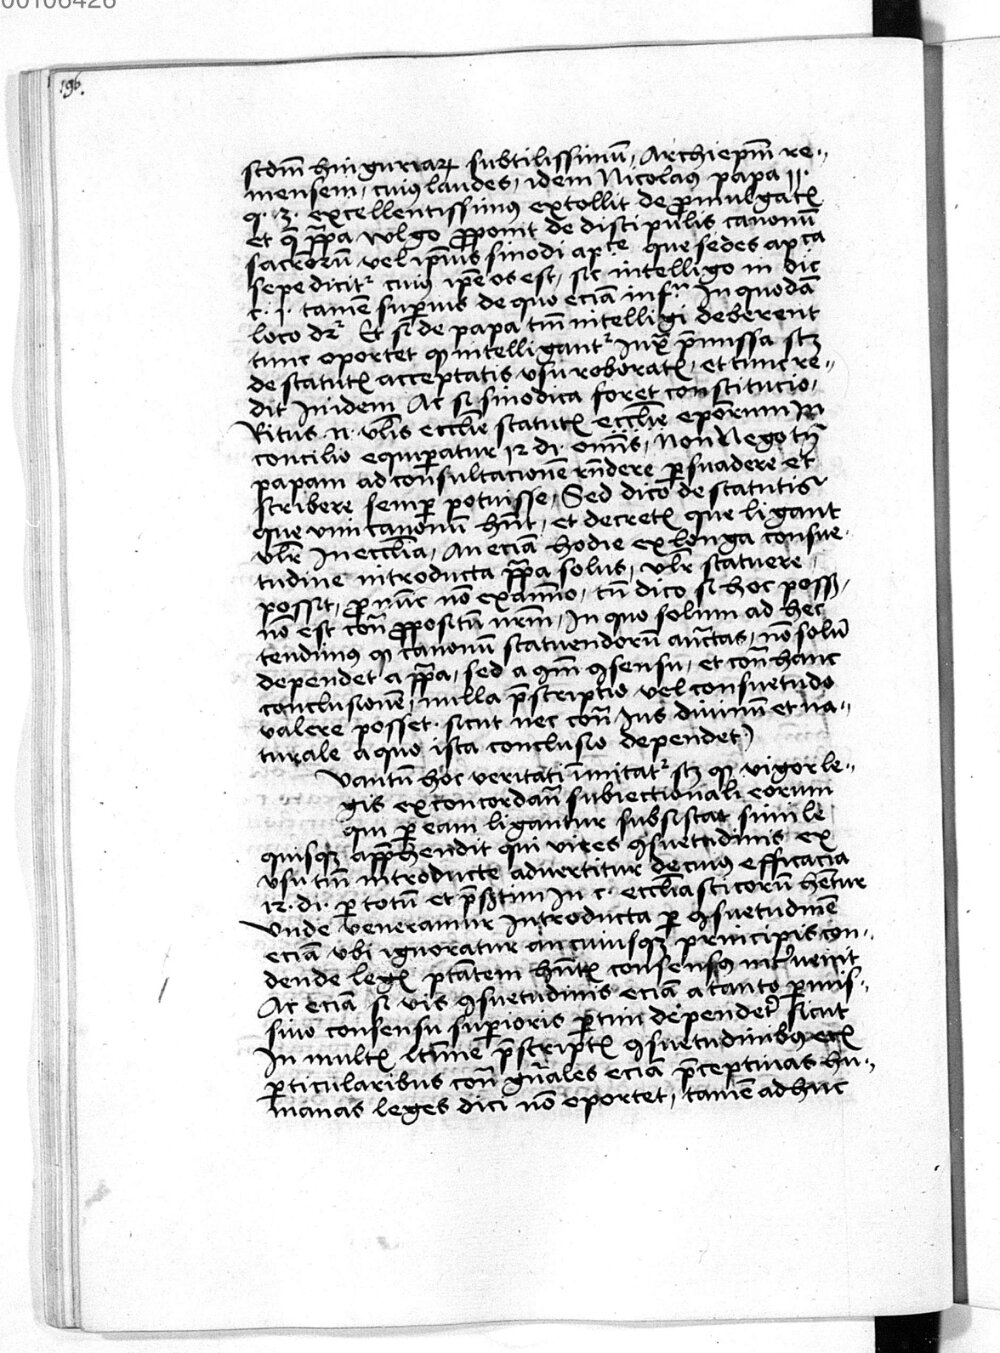 00106426
196.
scdm hinguriaꝝ subtilissimū, Archiepm̄ re-
mensem, cuiꝰ laudes, idem Nicolaꝰ papa 11.
q. 3. excellentissimꝰ extollit de ꝓmulgatꝭ
Et ꝙ ꝓpa vulgo ꝓponit de discipulis canonū
sacrorū vel ipsius sinodi apᶜᵉ que sedes apᶜᵃ
sepe dicitʳ cuiꝰ ipse os est, sic intelligo in dic
c. i. tamē suꝑius de quo eciā infᵃ In quodā
loco drʳ Et si de papa tm̄ intelligi deberent
tunc oportet ꝙ intelligantʳ Iuxᵃ p̄missa scꝫ
de statutꝭ acceptatis vsu roboratꝭ, et tunc re-
dit in idem Ac si sinodica foret constitucio,
Ritus n. vl̄is eccl̄ie statutꝭ eccl̄ie ep̄orum In
concilio equiꝑatur 12 di. omīs, Non Nego tn̄
papam ad consultacionē rn̄dere ꝑsuadere et
scribere semꝑ potuisse, Sed dico de statutis
que vim canonū hn̄t, et decretꝭ que ligant
vl̄r In eccl̄ia, An eciā hodie ex longa consue-
tudine introducta ꝓpa solus, vl̄r statuere
possit, ꝓ nūc nō examīo, tn̄ dico si hoc possꝫ,
nō est con̄ ꝓpositū nr̄m, In quo solum ad hec
tendimꝰ ꝙ canonū statuendorū auctas, nō solū
dependet a ꝓpa, sed a ꝯm̄ ꝯsensu, et con̄ hanc
conclusionē, nulla p̄scriptio vel consuetudo
valere posset sicut nec con̄ Ius diuinū et na-
turale a quo ista conclusio dependet
Uantū hoc veritati īnitatʳ scꝫ ꝙ vigor le-
gis ex concordan̄ subiectionali eorum
qui ꝑ eam ligantur subsistat simile
quisqꝫ app̄hendit qui vires ꝯsuetudinis ex
vsu tm̄ introducte aduertitur de cuiꝰ efficacia
12. di. ꝑ totū et p̄sertim In c. eccl̄iasticorū hētur
Unde veneramur Introducta ꝑ ꝯsuetudinē
eciā vbi ignoratur an cuiusqꝫ principis con-
dende legꝭ ptātem hn̄tꝭ consensꝰ interuenit
Ac eciā si vis ꝯsuetudinis eciā a tanto ꝑmis-
siuo consensu suꝑioris ꝑtim dependet sicut
In multꝭ ltīme p̄scriptꝭ ꝯsuetudinibꝰ eciā
ꝑticularibus con̄ gn̄ales eciā p̄ceptiuas hu-
manas leges dici nō oportet, tamē adhuc